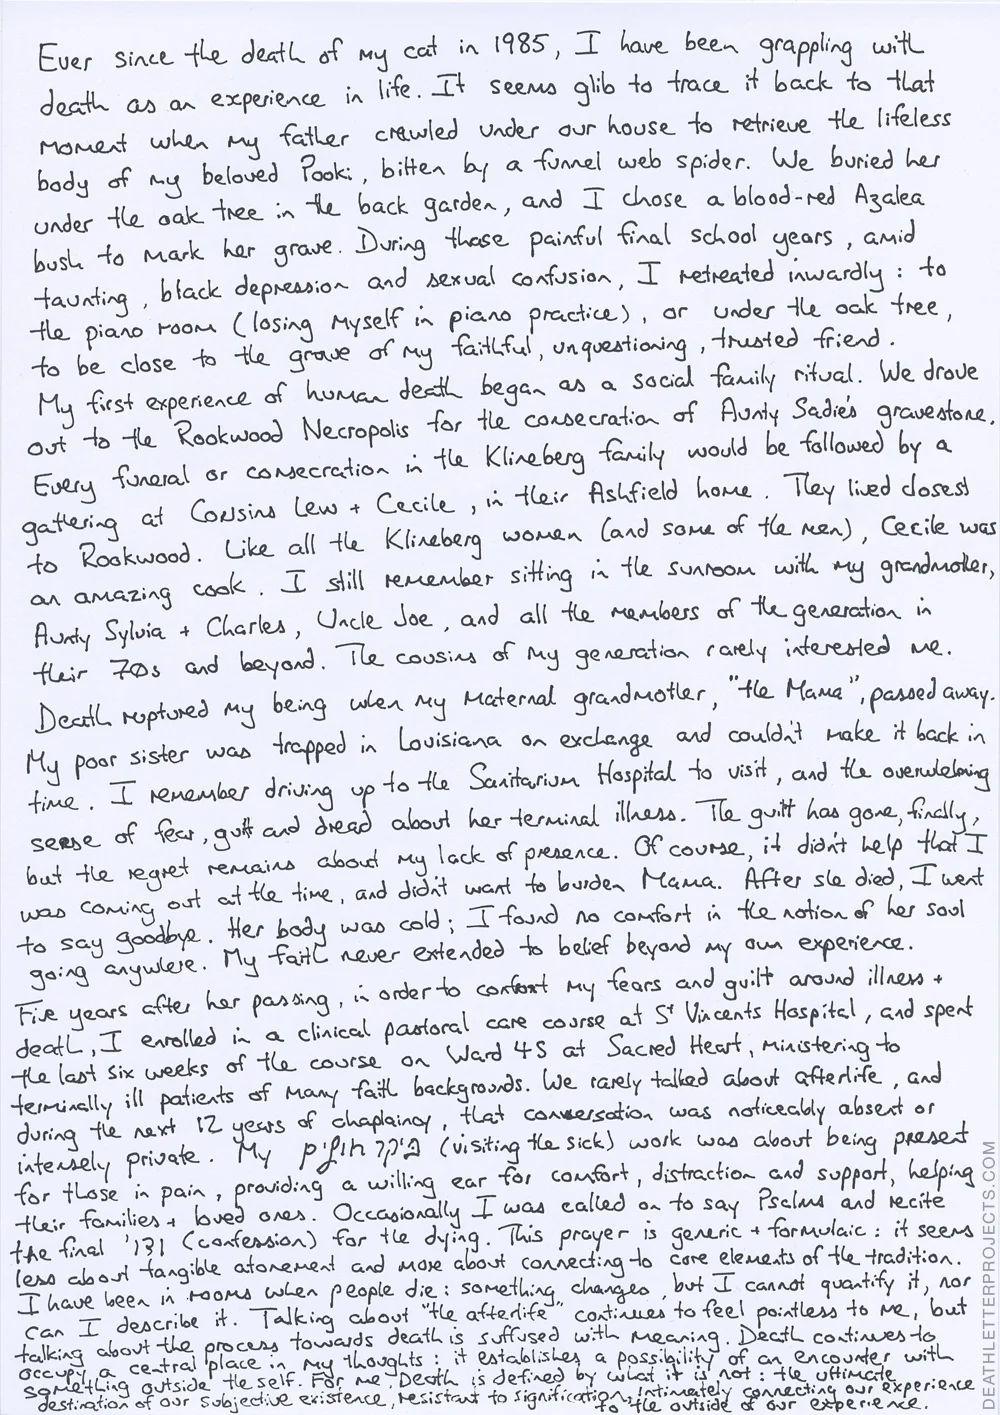 Ever since the death of my cat in 1985, I have been grappling with
death as an experience in life. It seems glib to trace it back to that
moment when my father crawled under our house to retrieve the lifeless
body of my beloved Pooki, bitten by a funnel web spider. We buried her
under the oak tree in the back garden, and I chose a blood-red Azalea
bush to mark her grave. During those painful final school years, amid
taunting, black depression and sexual confusion, I retreated inwardly: to
the piano room (losing myself in piano practice), or under the oak tree,
to be close to the grave of my faithful, unquestioning, trusted friend.
My first experience of human death began as a social family ritual. We drove
out to the Rookwood Necropolis for the consecration of Aunty Sadie's gravestone.
Every funeral or consecration in the Klineberg family would be followed by a
gathering at Cousins Lew + Cecile, in their Ashfield home. They lived closest
to Rookwood. Like all the Klineberg women (and some of the men), Cecile was
an amazing cook. I still remember sitting in the sunroom with my grandmother,
Aunty Sylvia + Charles, Uncle Joe, and all the members of the generation in
their 70s and beyond. The cousins of my generation rarely interested me.
Death ruptured my being when my maternal grandmother, "the Mama", passed away.
My poor sister was trapped in Louisiana on exchange and couldn't make it back in
time. I remember driving up to the Sanitarium Hospital to visit, and the overwhelming
sense of fear, guilt and dread about her terminal illness. The guilt has gone, finally,
but the regret remains about my lack of presence. Of course, it didn't help that I
was coming out at the time, and didn't want to burden Mama. After she died, I went
to say goodbye. Her body was cold; I found no comfort in the notion of her soul
going anywhere. My faith never extended to belief beyond my own experience.
Five years after her passing, in order to confront my fears and guilt around illness +
death, I enrolled in a clinical pastoral care course at St Vincents Hospital, and spent
the last six weeks of the course on Ward 4S at Sacred Heart, ministering to
terminally ill patients of many faith backgrounds. We rarely talked about afterlife, and
during the next 12 years of chaplaincy, that conversation was noticeably absent or
intensely private. My ביקור חולים (visiting the sick) work was about being present
for those in pain, providing a willing ear for comfort, distraction and support, helping
their families + loved ones. Occasionally I was called on to say Psalms and recite
the final וידוי (confession) for the dying. This prayer is generic + formulaic: it seems
less about tangible atonement and more about connecting to core elements of the tradition.
I have been in rooms when people die: something changes, but I cannot quantify it, nor
can I describe it. Talking about "the afterlife" continues to feel pointless to me, but
talking about the process towards death is suffused with meaning. Death continues to
occupy a central place in my thoughts: it establishes a possibility of an encounter with
something outside the self. For me, Death is defined by what it is not: the ultimate
destination of our subjective existence, resistant to signification, intimately connecting our experience
to the outside of our experience.
DEATHLETTERPROJECTS.COM